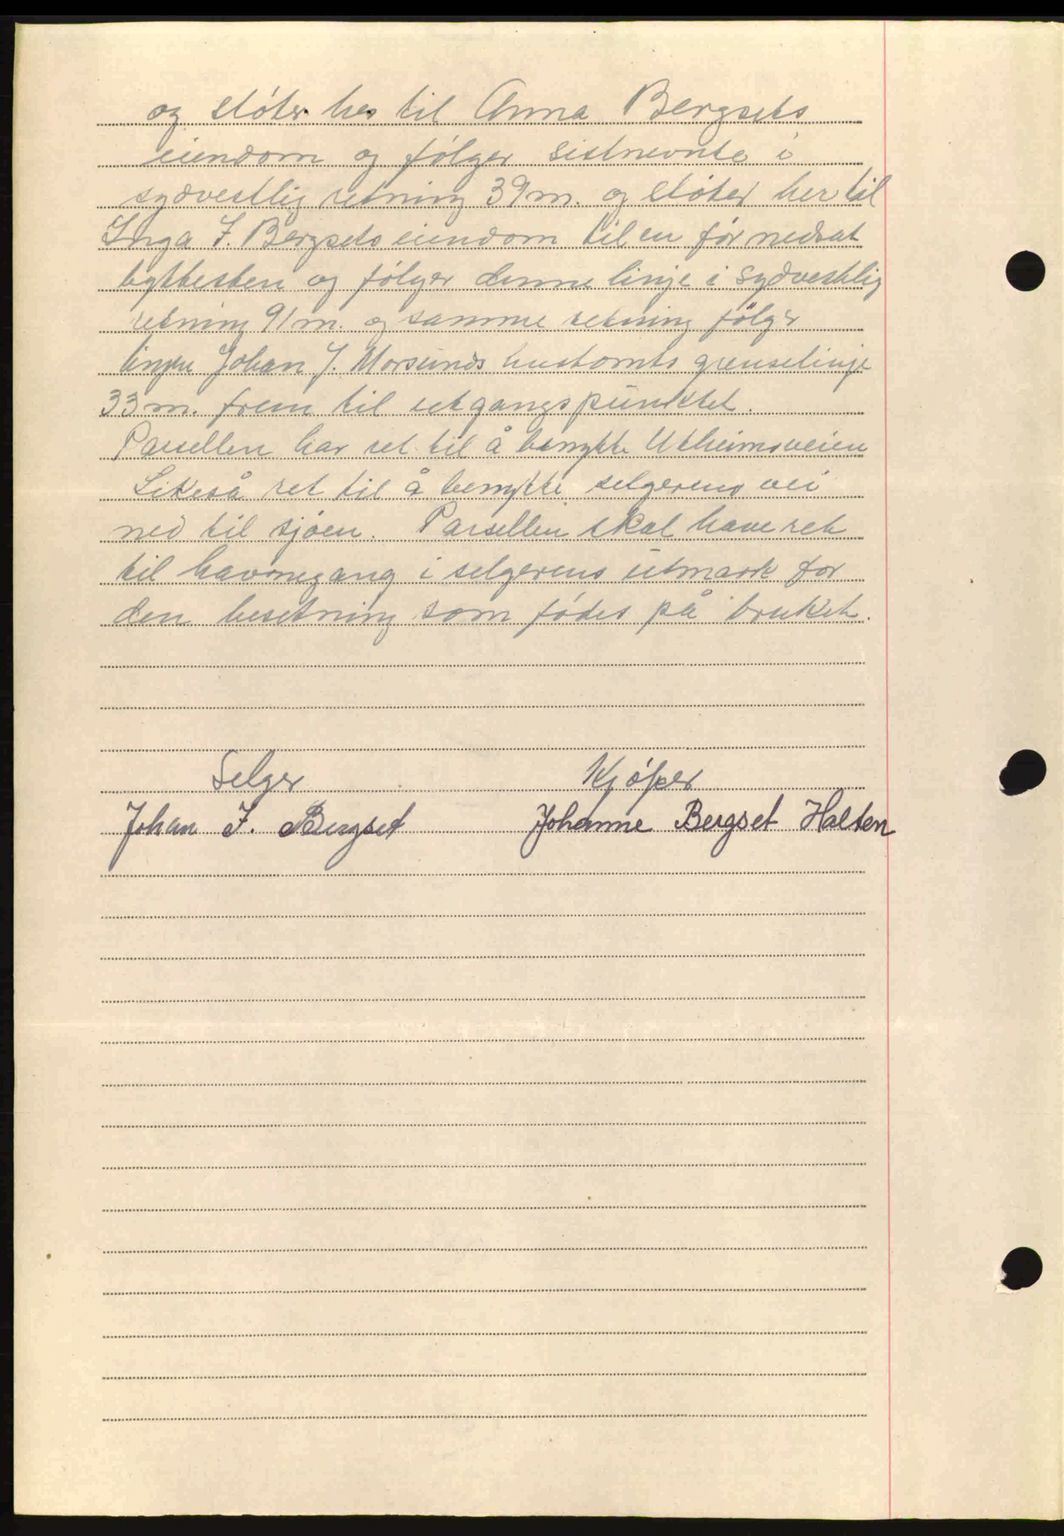 og støter her til Anna Bergsets
eiendom og følger sistnevnte i
sydvestlig retning 39 m. og støter her til
Inga J. Bergsets eiendom til en før nedsat
byttesten og følger denne linje i sydvestlig
retning 91 m. og samme retning følger
linjen Johan J. Morsunds hustomts grenselinje
33 m. frem til utgangspunktet.
Parsellen har ret til å benytte Utheimsveien
Likeså ret til å benytte selgerens vei
ned til sjøen. Parsellen skal have ret
til havnegang i selgerens utmark for
den besetning som fødes på bruket.
Selger Kjøper
Johan J. Bergset Johanne Bergset Halten